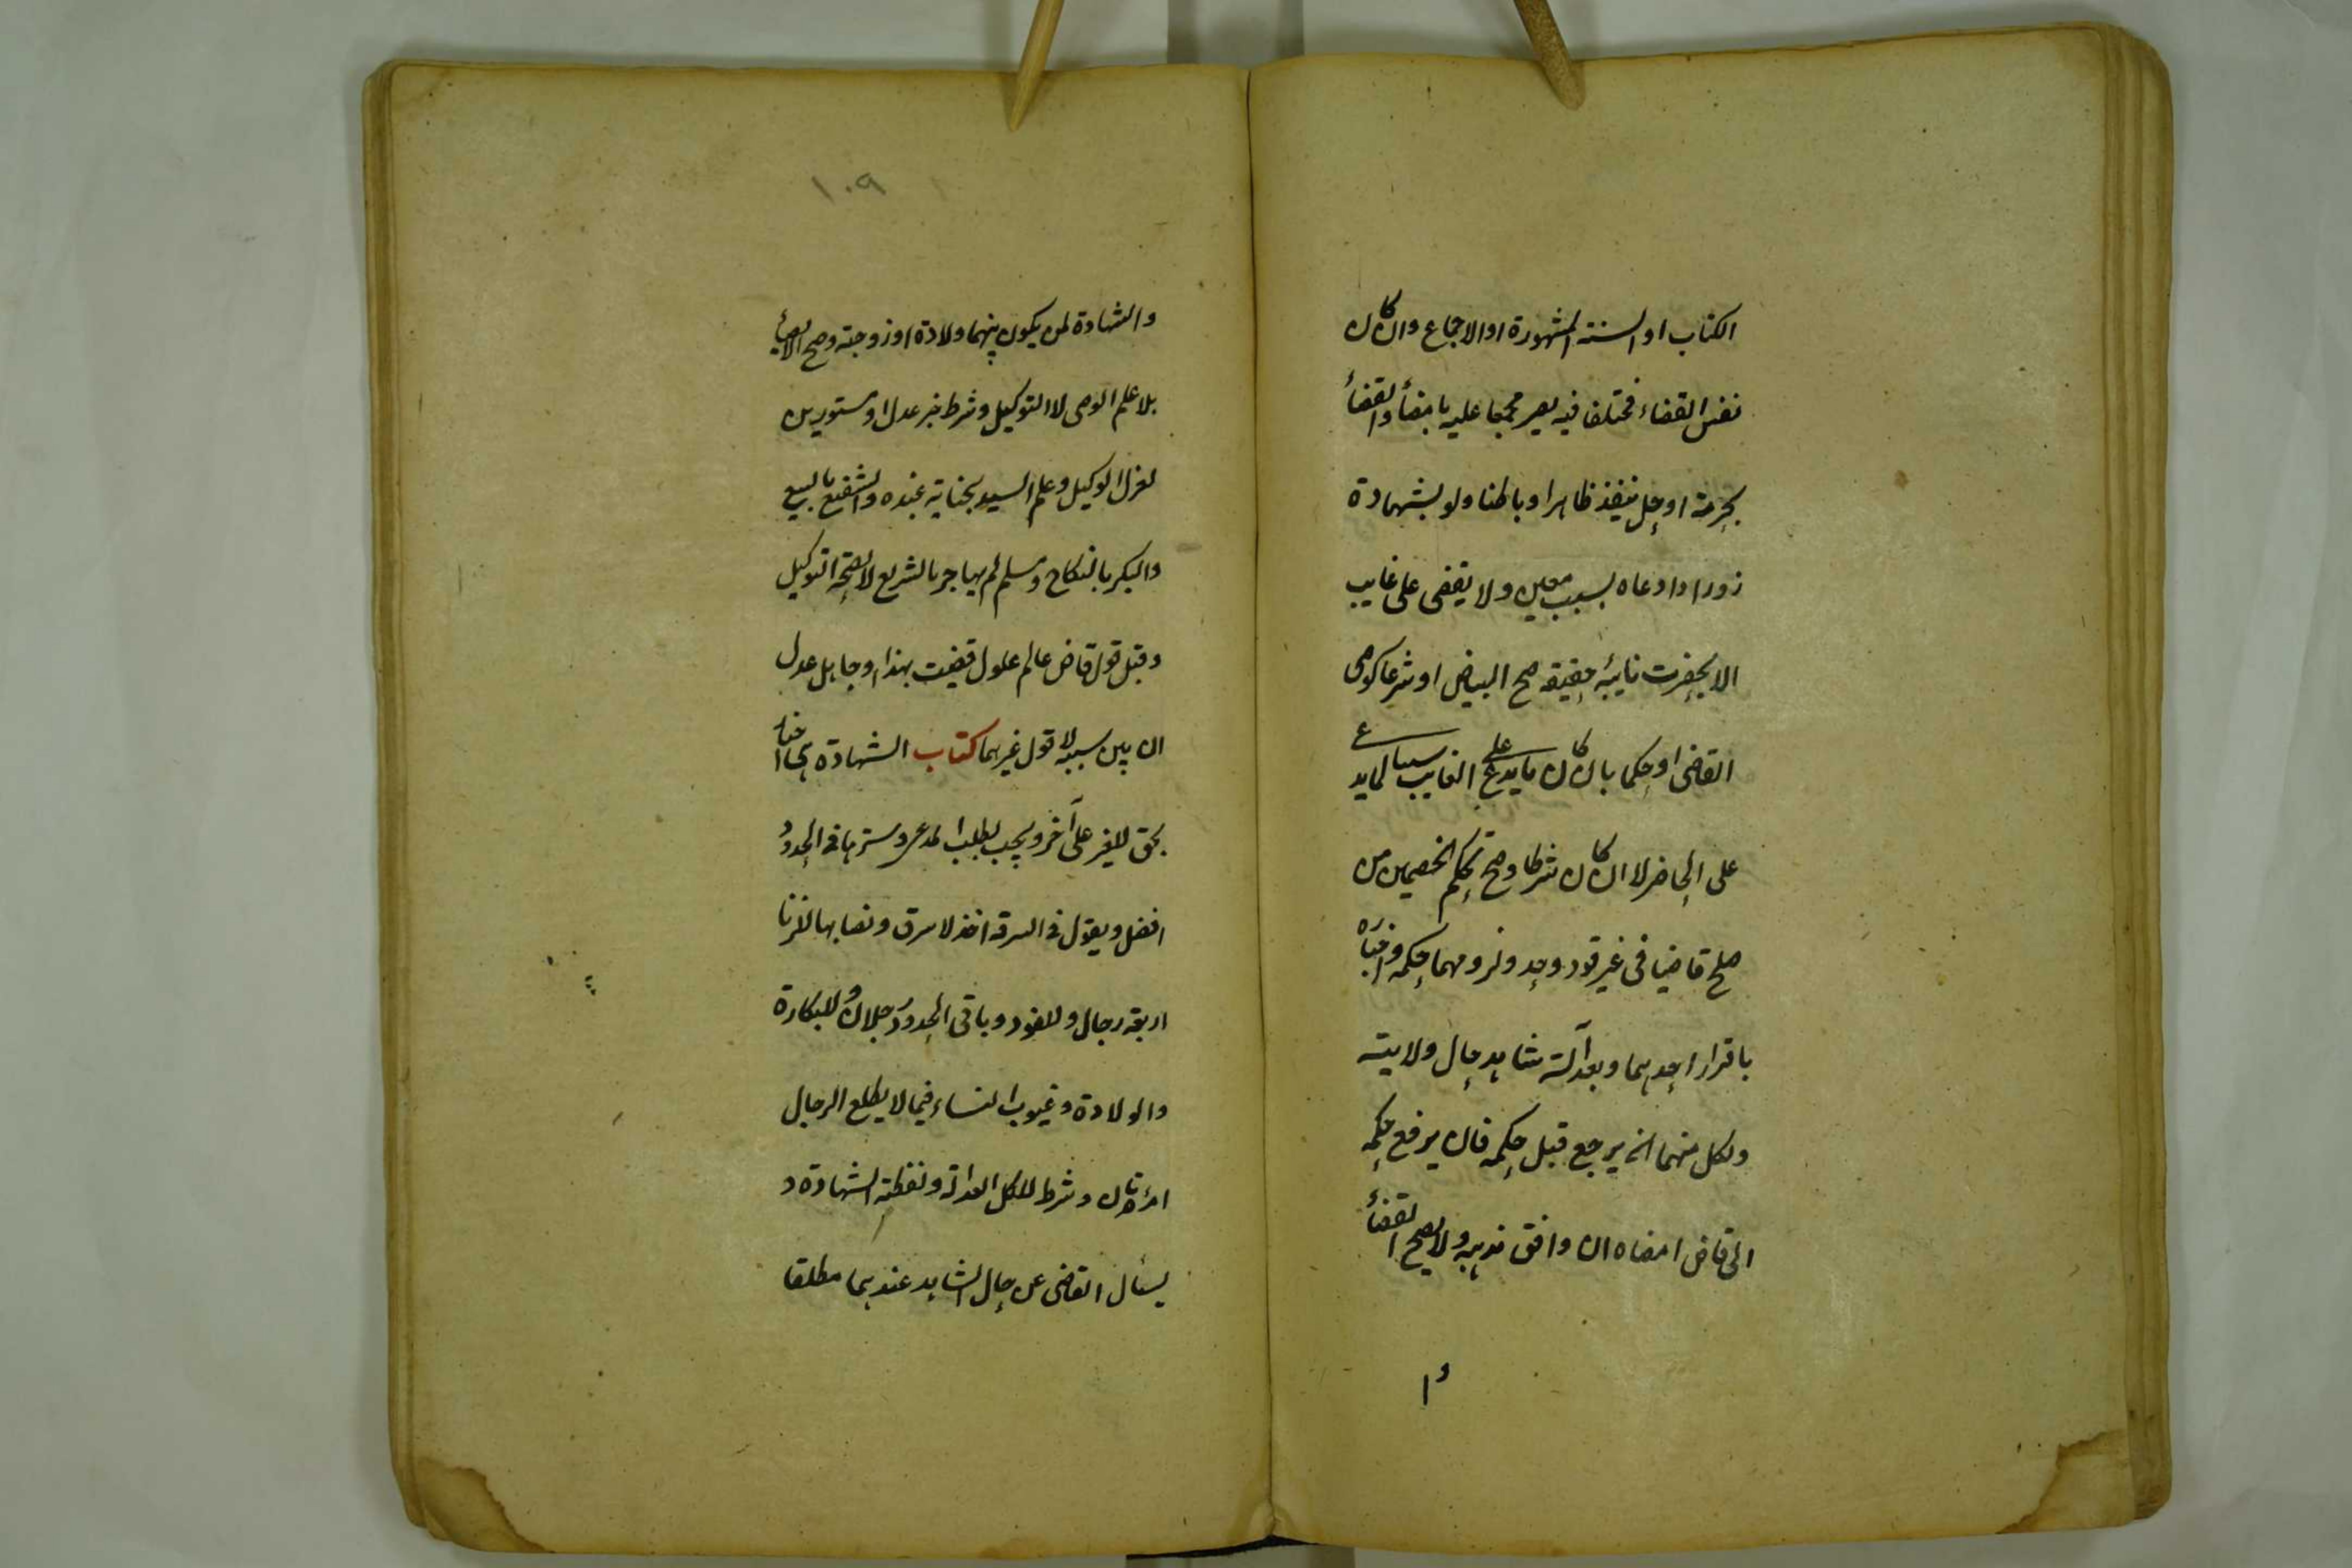 الكتاب او السنة المشهورة او الاجماع وان كان
نفس القضاء مختلف فيه يصير مجمعا عليه بامضأ والقضأ
بحرمة او حل ينفذ ظاهرا وباطنا ولو بشهادة
زور اذا ادعاه بسبب معين ولا يقضى على غايب
الا بحضرت نايبه حقيقة صح البيض او شرعا كوصى
القاضى او حكما بان كان ما يدعى على الغايب سببا لما يدع
على الحاضر لا ان كان شرطا وصح تحكم الخصمين من
صلح قاضيا فى غير قود وحد ولزومهما حكمه واخباره
باقرار احدهما وبعدالة شاهد حال ولايته
ولكل منهما ان يرجع قبل حكمه فان يرفع حكمه
الى قاض امضاه ان وافق مذهبه ولا يصح القضأ
وا
١٠٩
والشهادة لمن يكون بينهما ولادة او زوجته وصح الايصأ
بلا علم الوصى لا التوكيل وشرط خبر عدل او مستورين
لعزل الوكيل وعلم السيد بجناية عبده والشفيع بالبيع
والبكر بالنكاح ومسلم لم يهاجر بالشريع لا لصحة التوكيل
وقبل قول قاض عالم عدل قضيت بهذا وجاهل عدل
ان بين سببه لا قول غيرهما كتاب الشهادة هى اخبار
بحق للغير على آخر ويجب بطلب المدعى وسترها فى الحدود
افضل ويقول فى السرقة اخذ لا سرق ونصابها للزنا
اربعة رجال وللقود وباقى الحدود رجلان وللبكارة
والولادة وعيوب النساء فيما لا يطلع الرجال
امرأتان وشرط للكل العدالة ولفظة الشهادة و
يسئال القاضى عن حال الشاهد عندهما مطلقا